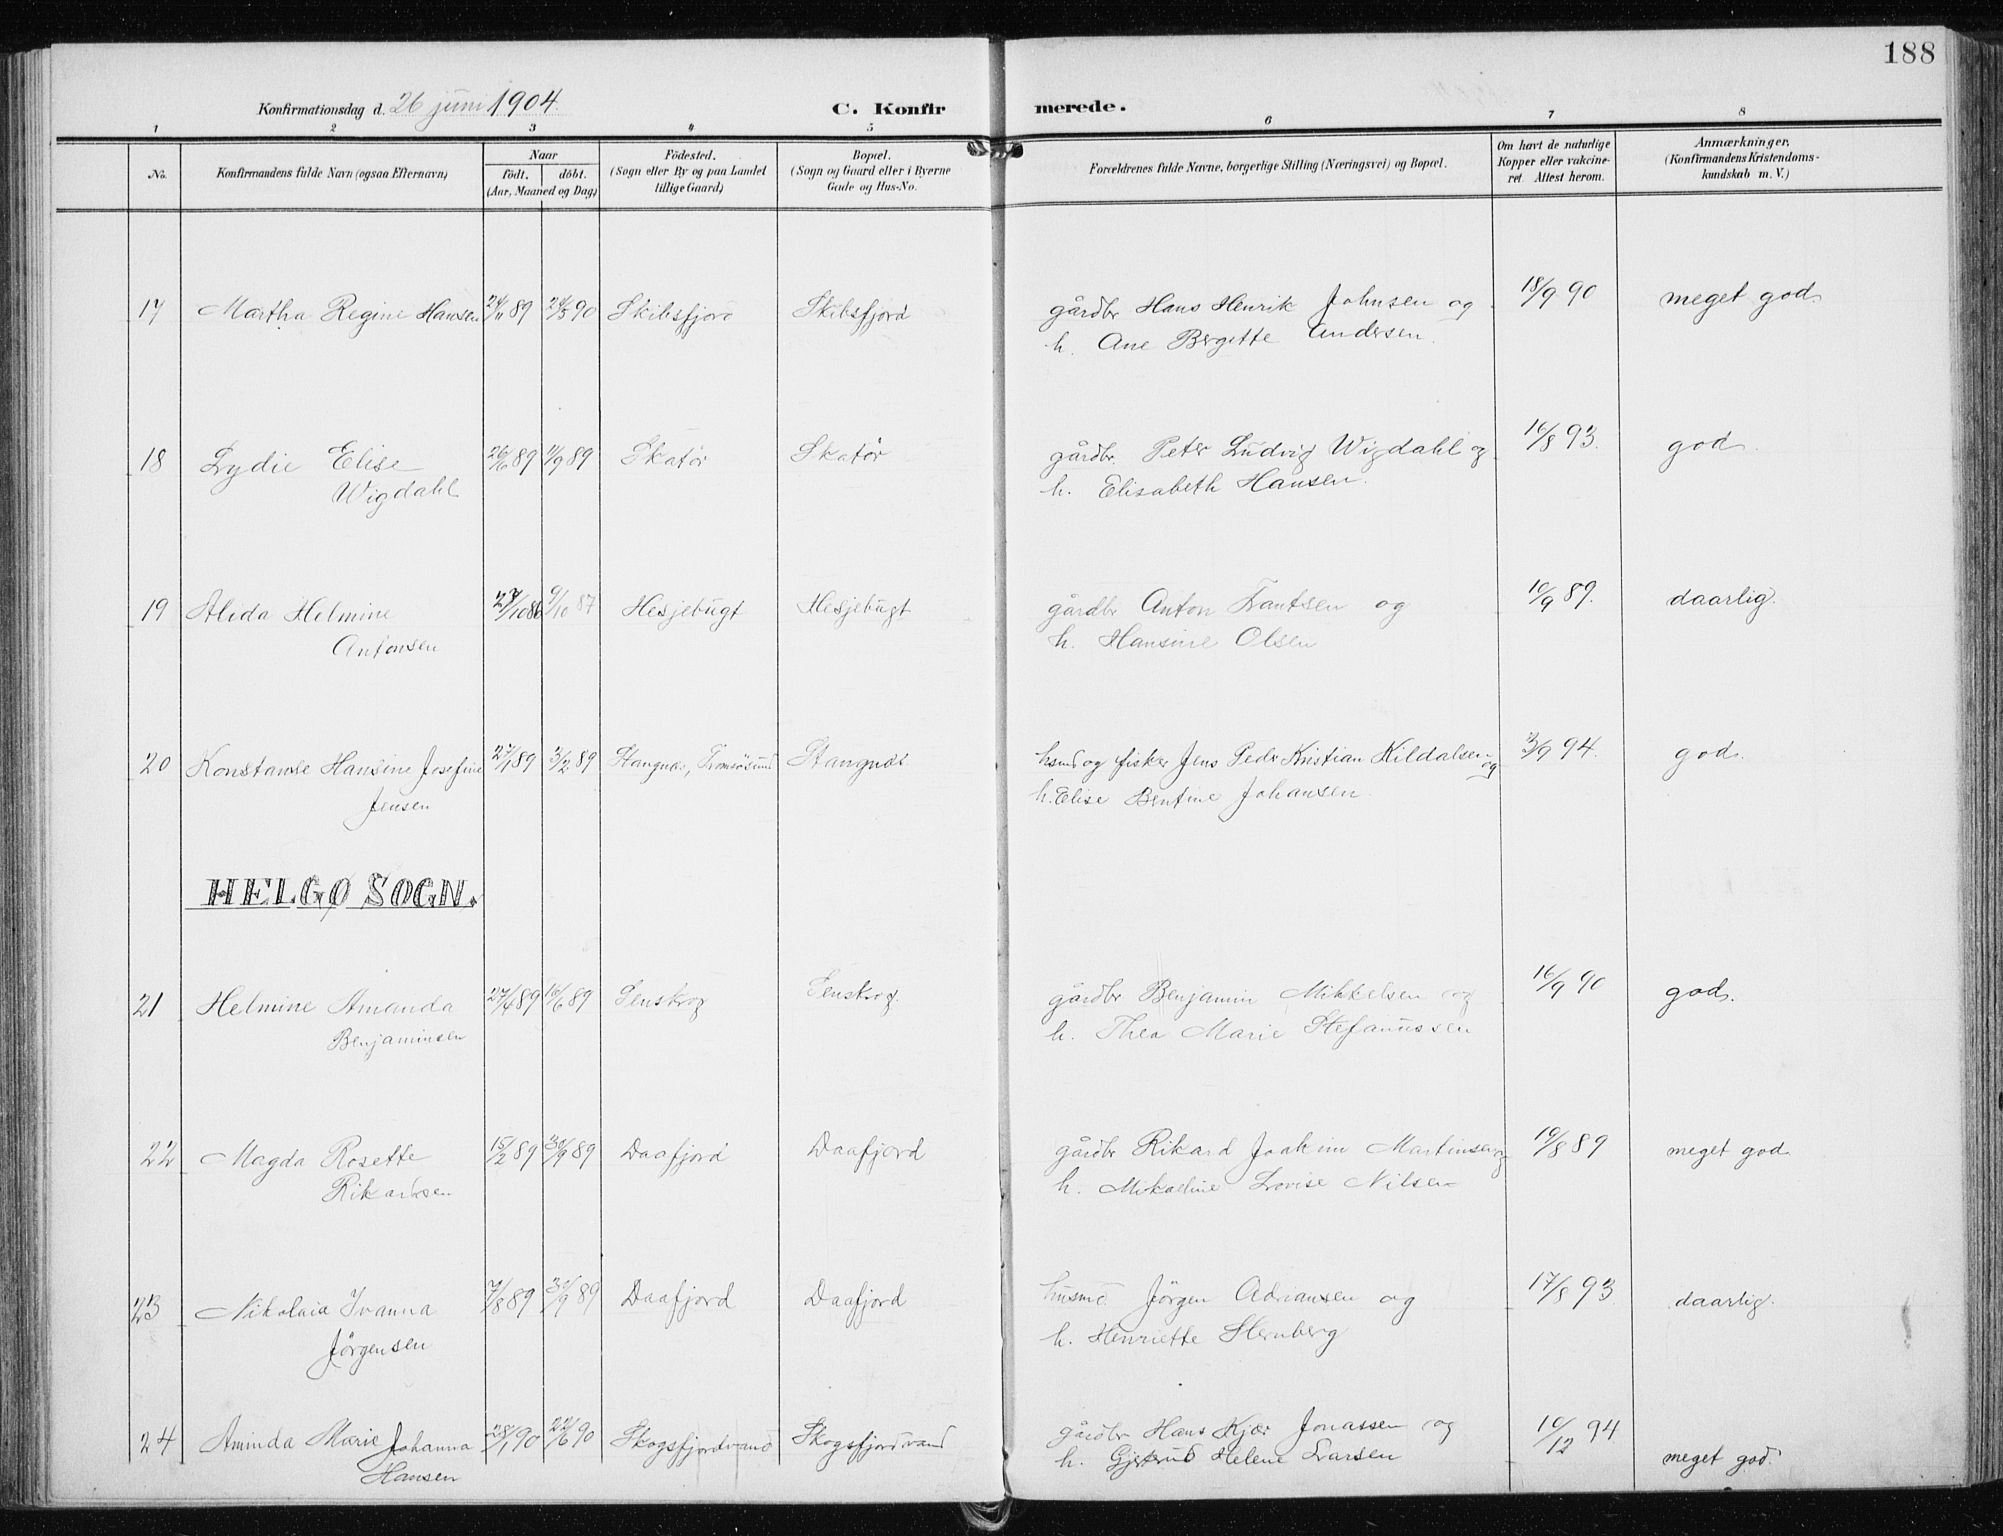 188
Konfirmationsdag d. 26 juni 1904. C. Konfirmerede.
1 2 3 4 5 6 7 8
No. Konfirmandens fulde Navn (ogsaa Efternavn) Naar födt. döbt. (Aar, Maaned og Dag) Födested. (Sogn eller By og paa Landet tillige Gaard) Bopæl. (Sogn og Gaard eller i Byerne Gade og Hus-No. Forældrenes fulde Navne, borgerlige Stilling (Næringsvei) og Bopæl. Om havt de naturlige Kopper eller vakcineret. Attest herom. Anmærkninger. (Konfirmandens Kristendomskundskab m. V.)
17 Martha Regine Hansen 24/11 89 24/5 90 Skibsfjord Skibsfjord gårdbr Hans Henrik Johnsen og 18/9 90 meget god
h. Ane Bergitte Andersen.
18 Lydie Elise 26/6 89 1/9 89 Skatør Skatør gårdbr. Peter Ludvig Wigdahl og 16/8 93. god.
Wigdahl h. Elisabeth Hansen.
19 Alida Helmine 27/10 86 9/10 87 Hesjebugt Hesjebugt gårdbr Anton Frantsen og 10/9 89. daarlig.
Antonsen h. Hansine Olsen
20 Konstanse Hansine Josefine 27/1 89 3/2 89 Stangnæs, Tromsösund Stangnæs husmd og fisker Jens Peder Kristian Kildalsen og 3/9 94. god.
Jensen h. Elise Bentine Johansen.
HELGØ SOGN.
21 Helmine Amanda 27/4 89 16/6 89 Lenskog Lenskog. gårdbr Benjamin Mikkelsen og 16/9 90 god.
Benjaminsen h. Thea Marie Stefanussen
22 Magda Rosette 15/2 89 30/9 89 Daafjord Daafjord gårdbr Rikard Joakim Martinsen og 19/8 89 meget god
Rikardsen h. Mikaeline Lovise Nilsen
23 Nikolaia Ivanna 7/8 89 30/9 89 Daafjord Daafjord husmd Jörgen Adriansen og 17/8 93 daarlig.
Jörgensen h. Henriette Sternberg
24 Aminda Marie Johanna 28/1 90 22/6 90 Skogsfjordvand Skogsfjordvand gårdbr Hans Kjær Jonassen og 10/12 94 meget god.
Hansen h. Gjertrud Helene Larsen